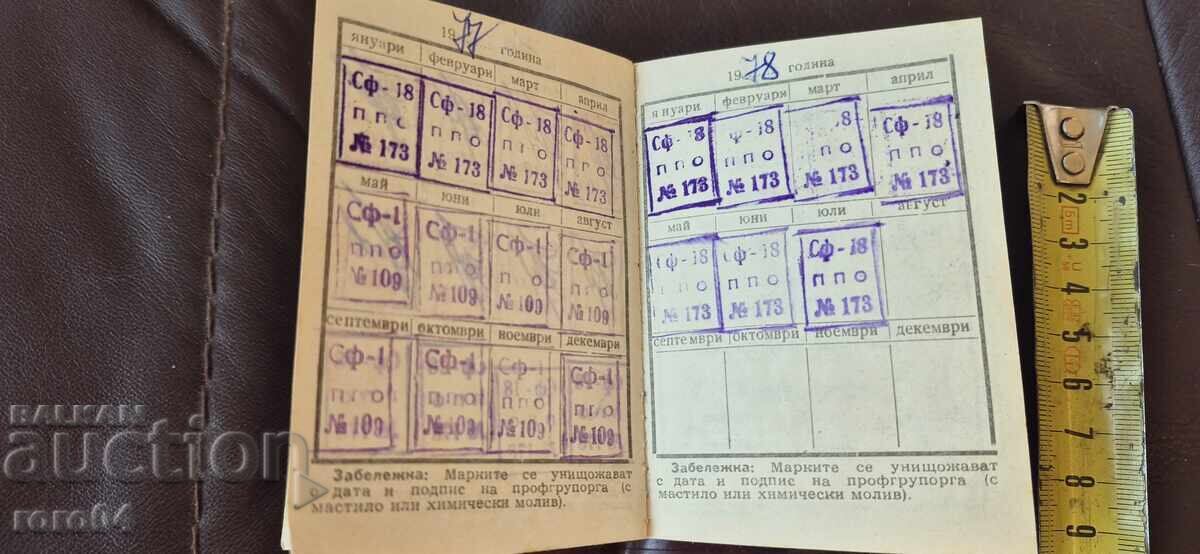 1977 година
януари февруари март април
Сф-18 Сф-18 Сф-18 Сф-18
ппо ппо ппо ппо
№ 173 № 173 № 173 № 173
май юни юли август
Сф-1 Сф-1 Сф-1 Сф-1
ппо ппо ппо ппо
№ 109 № 109 № 109 № 109
септември октомври ноември декември
Сф-1 Сф-1 Сф-1
ппо ппо ппо ппо
№ 109 № 109 № 109 № 109
Забележка: Марките се унищожават
с дата и подпис на профгрупорга (с
мастило или химически молив).
1978 година
януари февруари март април
Сф-18 ф-18 18 Сф-18
ппо ппо по ппо
№ 173 № 173 № 173 № 173
май юни юли август
Сф-18 ф-18 Сф-18
ппо ппо ппо
№ 173 № 173 № 173
септември октомври ноември декември
Забележка: Марките се унищожават
с дата и подпис на профгрупорга (с
мастило или химически молив).
2
3
4
5
6
7
8
9
БАЛКАН
auction
roro84